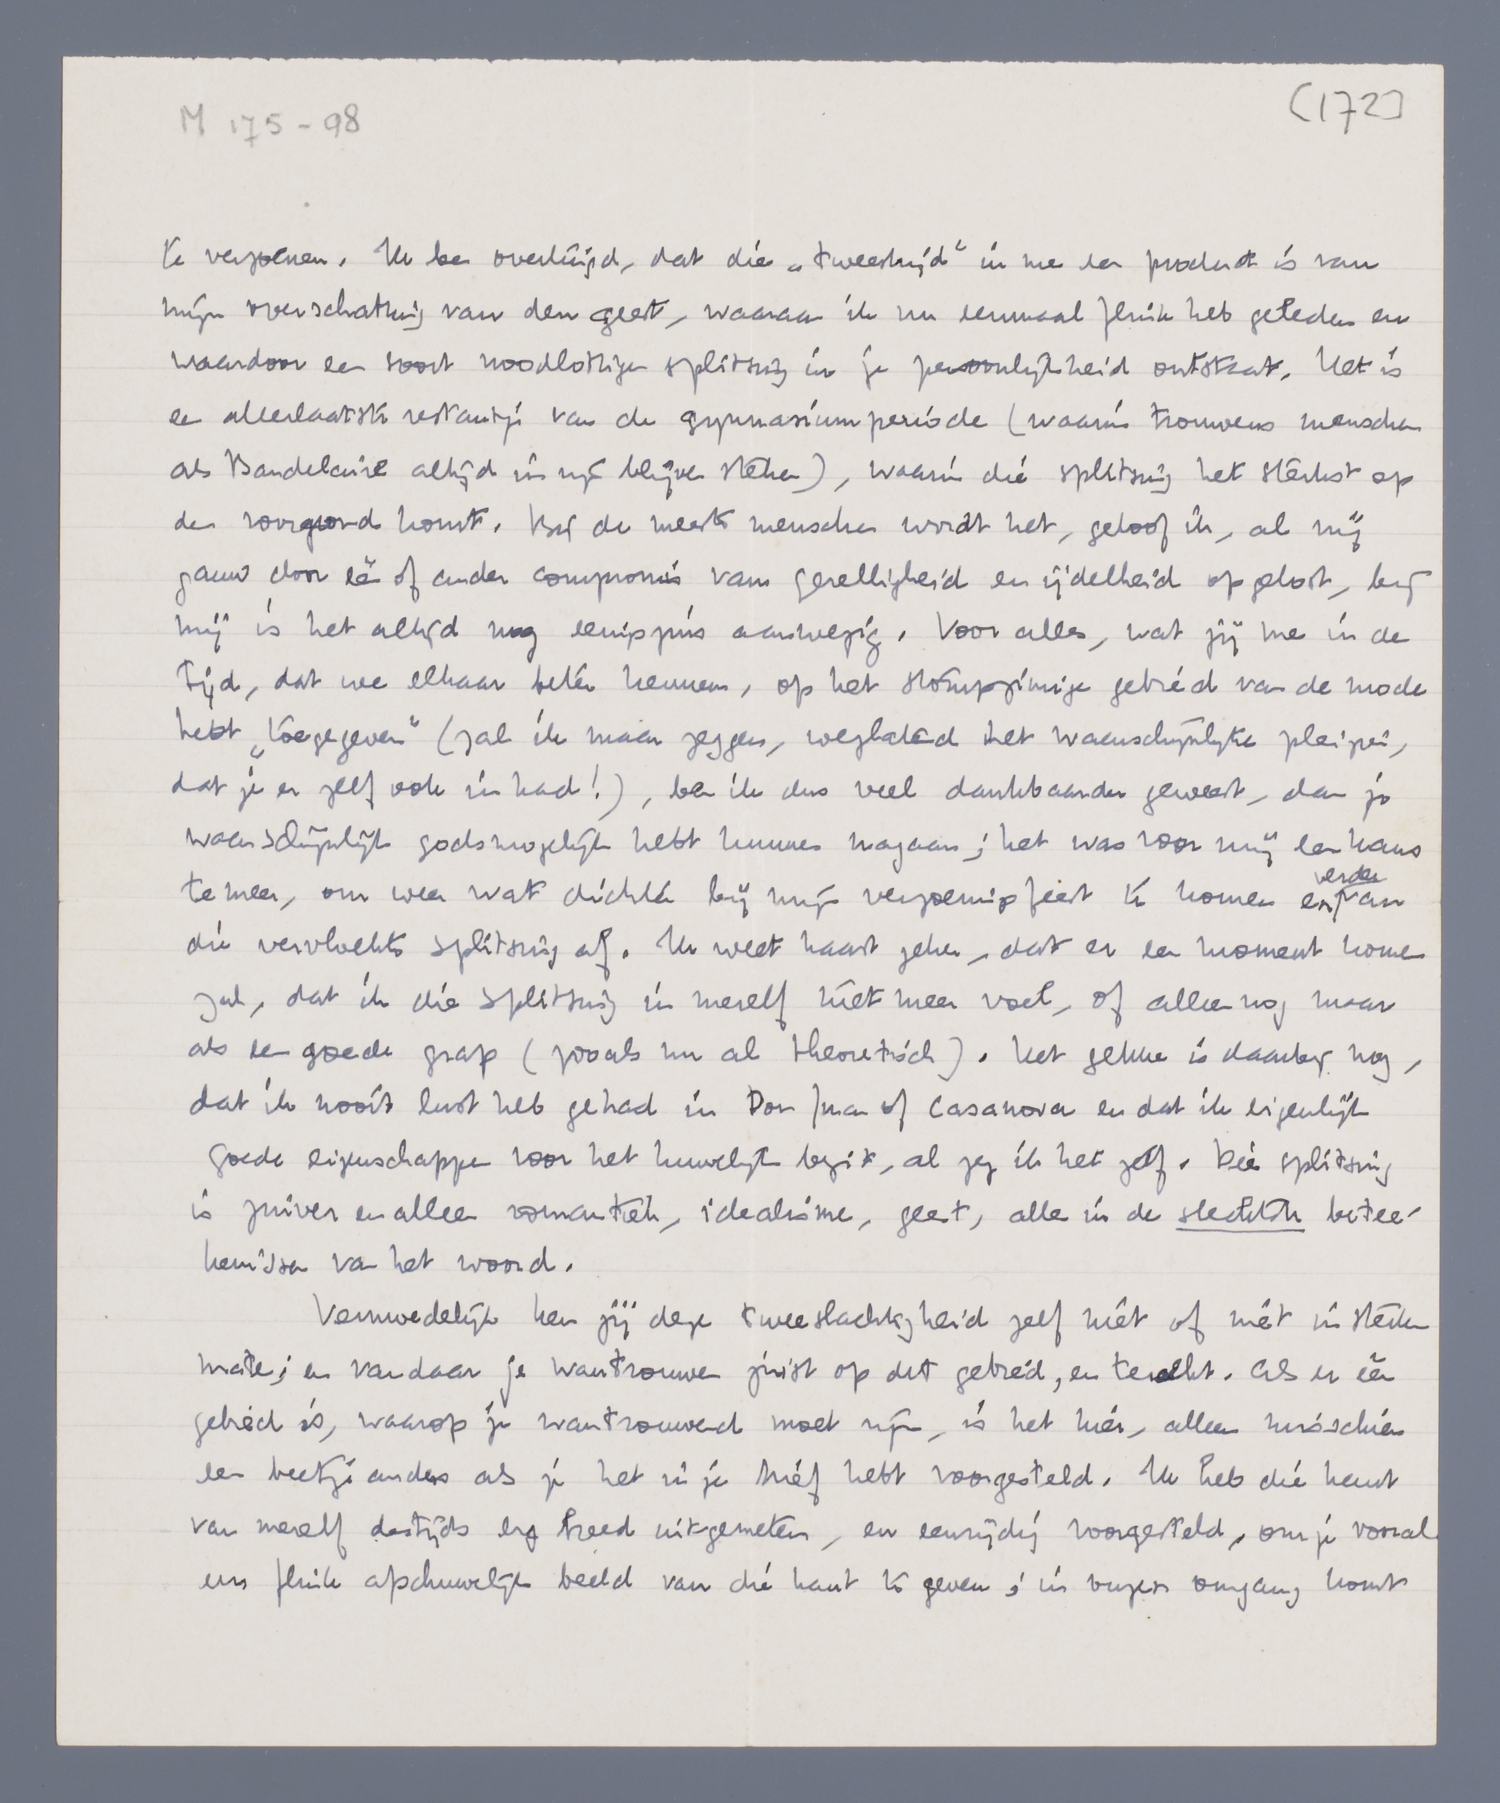 M 175-98
[172]
te verzoenen. Ik ben overtuigd, dat die „tweestrijd” in me een product is van
mijn overschatting van den geest, waaraan ik nu eenmaal flink heb geleden en
waardoor een soort noodlottige splitsing in je persoonlijkheid ontstaat. Het is
een allerlaatste restantje van de gymnasiumperiode (waarin trouwens menschen
als Baudelaire altijd in zijn blijven steken), waarin die splitsing het sterkst op
den voorgrond komt. Bij de meeste menschen wordt het, geloof ik, al vrij
gauw door één of ander compromis van gezelligheid en ijdelheid opgelost, bij
mij is het altijd nog eenigszins aanwezig. Voor alles, wat jij me in de
tijd, dat we elkaar beter kennen, op het stompzinnige gebied van de mode
hebt „toegegeven” (zal ik maar zeggen, weglatend het waarschijnlijke pleizier,
dat je er zelf ook in had!), ben ik dus veel dankbaarder geweest, dan je
waarschijnlijk godsmogelijk hebt kunnen nagaan; het was voor mij een kans
te meer, om weer wat dichter bij mijn verzoeningsfeest te komen en verder van
die vervloekte splitsing af. Ik weet haast zeker, dat er een moment komen
zal, dat ik die splitsing in mezelf niet meer voel, of alleen nog maar
als een goede grap (zooals nu al theoretisch). Het gekke is daarbij nog,
dat ik nooit lust heb gehad in Don Juan of Casanova en dat ik eigenlijk
goede eigenschappen voor het huwelijk bezit, al zeg ik het zelf. Dié splitsing
is zuiver en alleen romantiek, idealisme, geest, alle in de slechtste betee-
kenissen van het woord.
Vermoedelijk ken jij deze tweeslachtigheid zelf niet of niet in sterke
mate; en vandaar je wantrouwen juist op dit gebied, en terecht. Als er één
gebied is, waarop je wantrouwend moet zijn, is het hier, alleen misschien
een beetje anders als je het in je brief hebt voorgesteld. Ik heb die kant
van mezelf destijds erg breed uitgemeten, en eenzijdig voorgesteld, om je vooral
een flink afschuwelijk beeld van die kant te geven; in onzen omgang komt